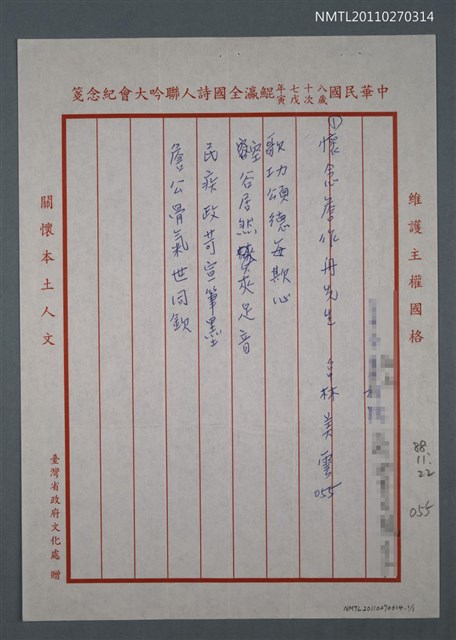 NMTL20110270314
中華民國八十七年歲次戊寅鯤瀛全國詩人聯吟大會紀念箋
維護主權國格
①懷念詹作舟先生 林美雲 055
歌功頌德每欺心
空谷居然來足音
民疾政苛宣筆墨
詹公骨氣世同欽
關懷本土人文
臺灣省政府文化處 贈
88.
11.
22
055
NMTL20110270314-1/1